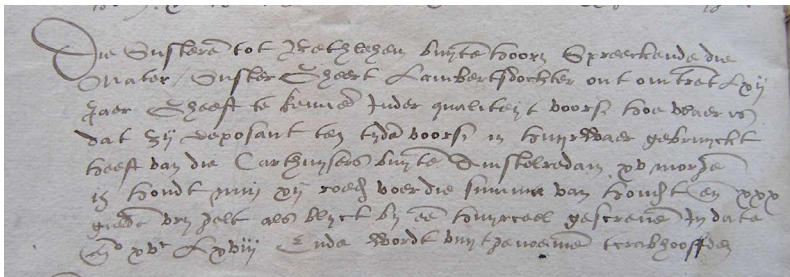 Die Susteren tot Bethlehen buyte hoorn Spreeckende die
Mater / Suster Gheert Lambertsdochter out omtret Lxij
Jaer Gheeft te kennen Inder qualiteijt voors hoe waer is
dat zij deposant ten tyde voors in huyrwaer gebruyckt
heeft van die Carthuysers buyte Amstelredam xv morge
hondt xij roed voer die summa van hondt en xxx
guld vrij gelt als blyct by ee huyrceel gescreve In date
Ao xvc Lxviij Ende wordt